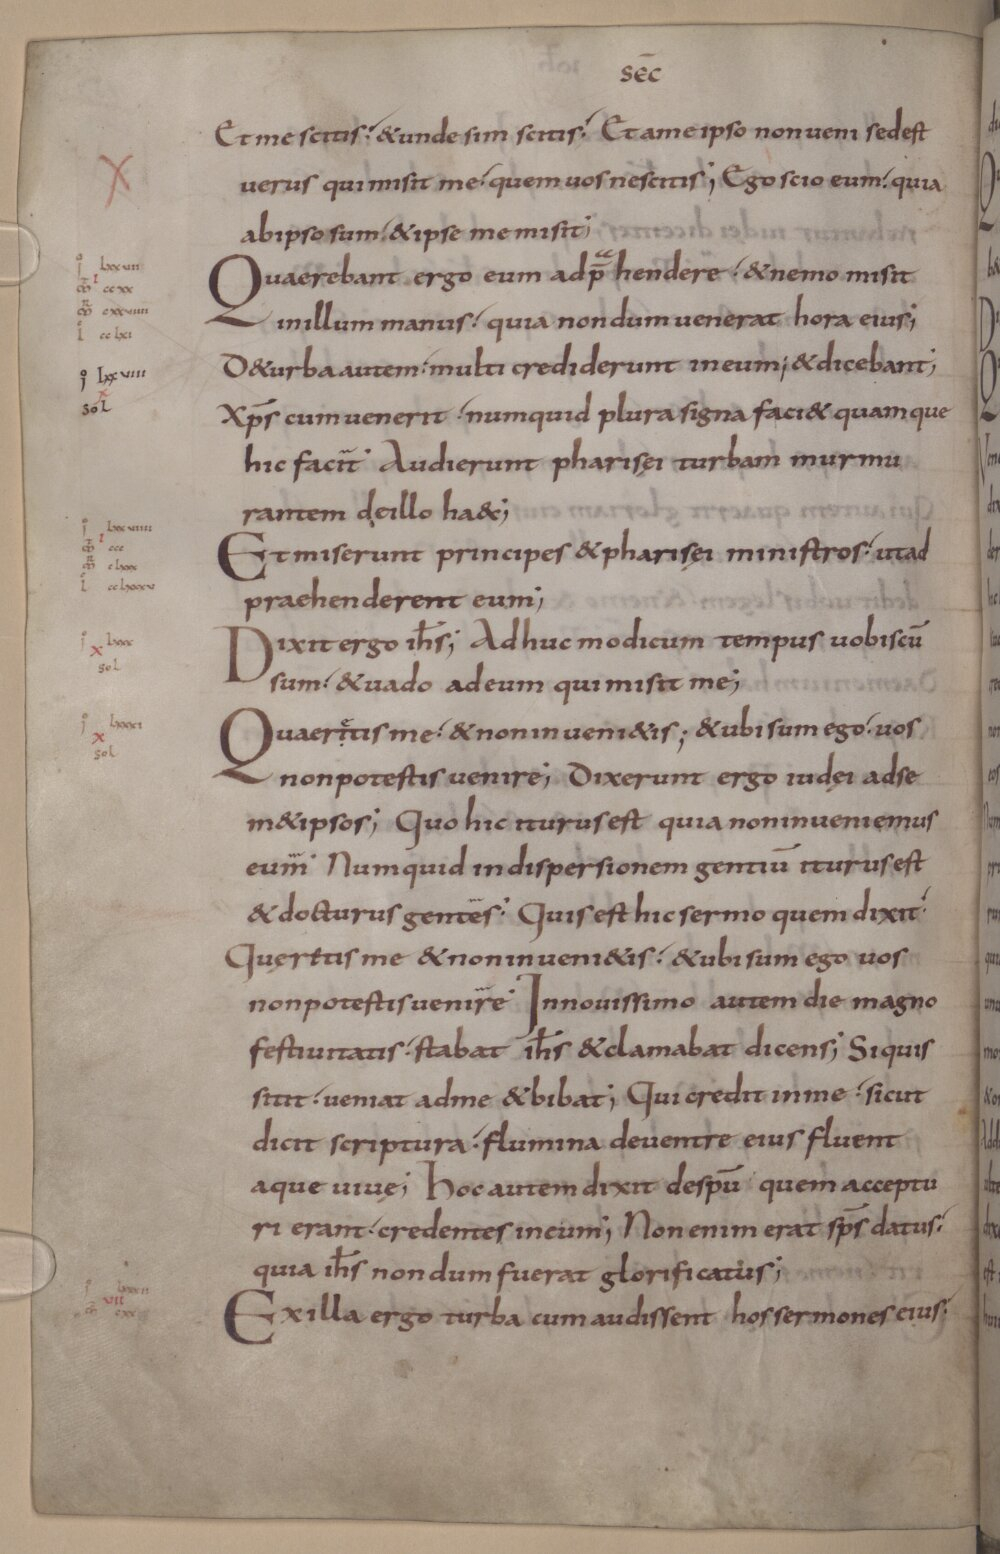 SEC̄
Et me scitis. & unde sim scitis. Et a me ipso non veni sed est
verus qui misit me. quem vos nescitis; Ego scio eum. quia
ab ipso sum. & ipse me misit;
Quaerebant ergo eum adp̄hendere. & nemo misit
in illum manus. quia nondum venerat hora eius;
D& urba autem. multi crediderunt in eum; & dicebant;
Xp̄s cum venerit. numquid plura signa faci& quam que
hic facit. Audierunt pharisęi turbam murmu
rantem de illo haec;
Et miserunt principes & pharisęi ministros. ut ad
praehenderent eum;
Dixit ergo ih̄s; Adhuc modicum tempus vobiscū
sum. & vado ad eum qui misit me;
Quaeritis me. & non inveni&is; & ubi sum ego. vos
non potestis venire; Dixerunt ergo iudęi ad se
m&ipsos; Quo hic iturus est quia non inveniemus
eum. Numquid in dispersionem gentiū iturus est
& docturus gentes. Quis est hic sermo quem dixit.
Quęritis me & non inveni&is. & ubi sum ego vos
non potestis venire. In novissimo autem die magno
festivitatis. stabat ih̄s & clamabat dicens; Si quis
sitit. veniat ad me & bibat; Qui credit in me. sicut
dicit scriptura. flumina de ventre eius fluent
aque vivę; Hoc autem dixit de sp̄u quem acceptu
ri erant. credentes in eum; Non enim erat sp̄s datus.
quia ih̄s nondum fuerat glorificatus;
Ex illa ergo turba cum audissent hos sermones eius.
X
lxxvii
ccxx
cxxviiii
cclxi
lxxviii
x
sol
lxxviiii
i
ccc
lxxx
x
sol
lxxxi
x
sol
vii